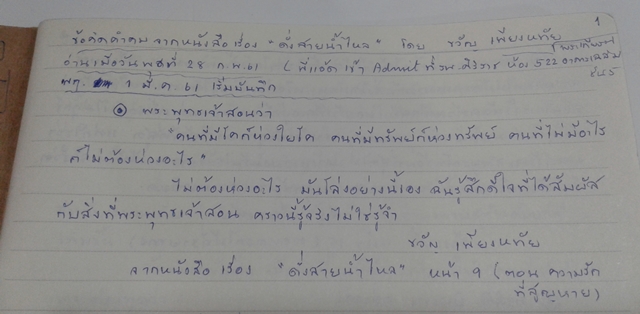 1
ข้อคิดคำคม จากหนังสือเรื่อง "ดั่งสายน้ำไหล" โดย ขวัญ เพียงหทัย
อ่านเมื่อวันพุธที่ 28 ก.พ. 61 (พี่แอ๊ด เข้า Admit ที่ รพ. ศิริราช ห้อง 522 อาคารเฉลิมพระเกียรติ
ชั้น 5
พฤ. 1 มี.ค. 61 เริ่มบันทึก
พระพุทธเจ้าสอนว่า
"คนที่มีโคก็ห่วงใยโค คนที่มีทรัพย์ก็ห่วงทรัพย์ คนที่ไม่มีอะไร
ก็ไม่ต้องห่วงอะไร"
ไม่ต้องห่วงอะไร มันโล่งอย่างนี้เอง ฉันรู้สึกดีใจที่ได้สัมผัส
กับสิ่งที่พระพุทธเจ้าสอน คราวนี้รู้จริงไม่ใช่รู้จำ
ขวัญ เพียงหทัย
จากหนังสือเรื่อง "ดั่งสายน้ำไหล" หน้า 9 (ตอน ความรัก
ที่สูญหาย)